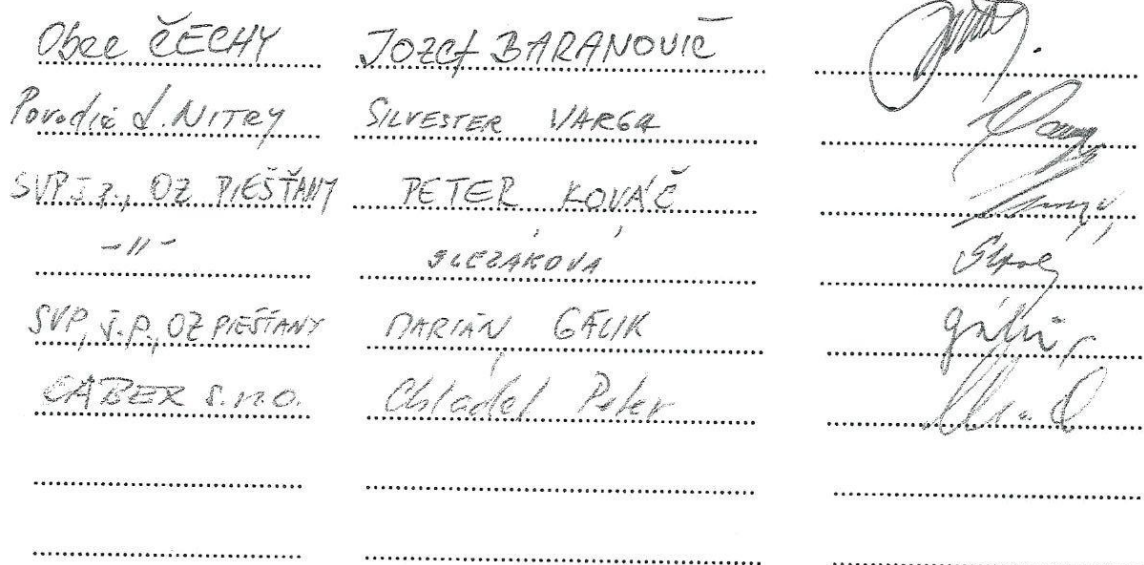 Obec ČECHY JOZEF BARANOVIČ
Povodie d. NITRY SILVESTER VARGA
SVP š.p., OZ PIEŠŤANY PETER KOVÁČ
-//- SLEZÁKOVÁ
SVP, š.p., OZ PIEŠŤANY MARIÁN GÁLIK
CABEX s.r.o. Chládel Peter